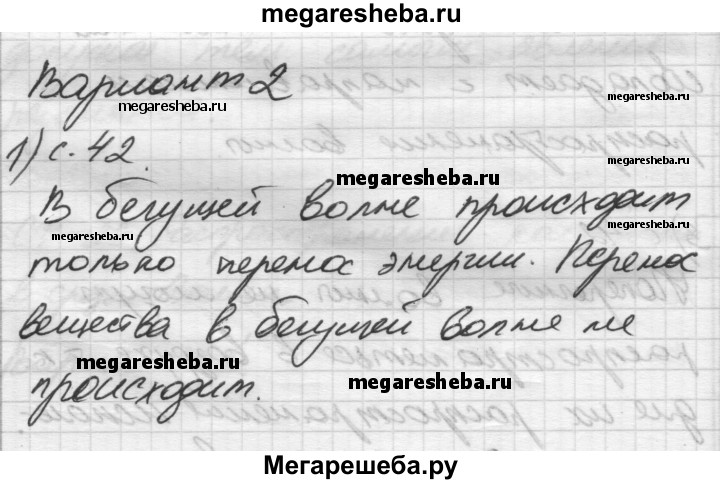 megaresheba.ru
Вариант 2
megaresheba.ru
megaresheba.ru
1) с. 42.
megaresheba.ru
megaresheba.ru
В бегущей волне происходит
megaresheba.ru
только перенос энергии. Перенос
вещества в бегущей волне не
megaresheba.ru
происходит.
megaresheba.ru
Мегарешеба.ру